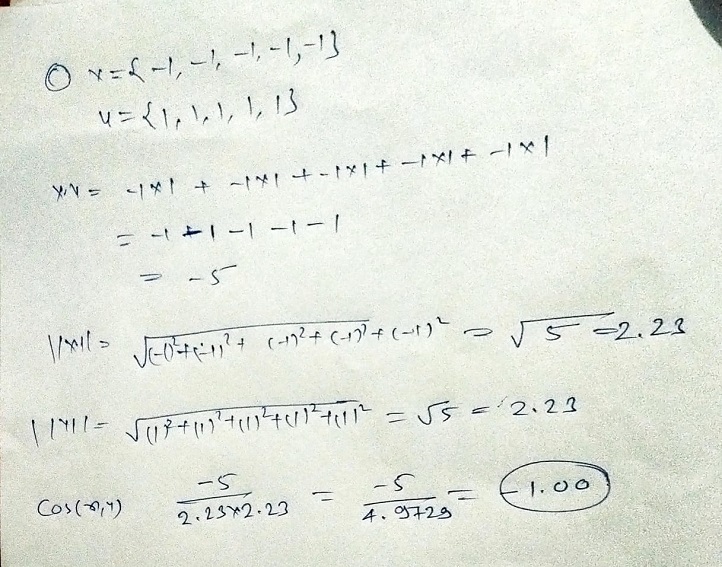 ① x={-1, -1, -1, -1, -1}
y={1, 1, 1, 1, 1}
x.y = -1×1 + -1×1 + -1×1 + -1×1 + -1×1
= -1 + 1 - 1 - 1 - 1
= -5
||x|| = √(-1)²+(-1)²+ (-1)²+(-1)²+(-1)² = √5 = 2.23
||y|| = √(1)²+(1)²+(1)²+(1)²+(1)² = √5 = 2.23
Cos(x,y) -5/2.23×2.23 = -5/4.9729 = -1.00